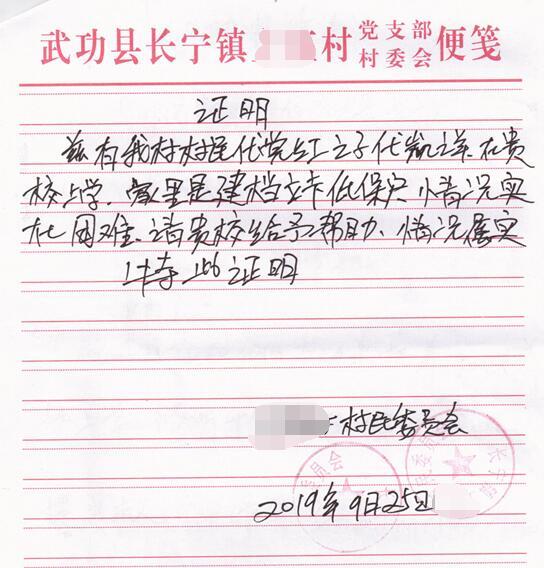 武功县长宁镇 村党支部村委会便笺
证明
兹有我村村民代党红之子代凯洋在贵
校上学、家里是建档立卡低保户、情况实
在困难、请贵校给予帮助、情况属实
特此证明
村民委员会
2019年9月25日